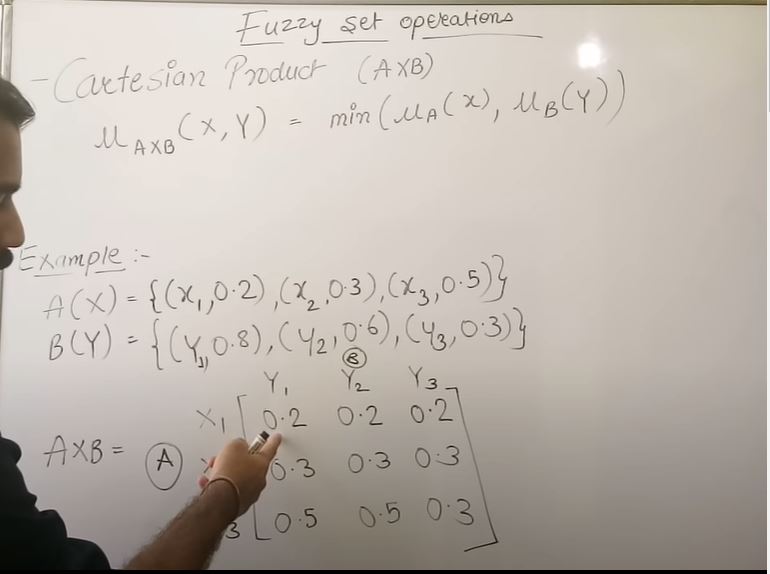 Fuzzy set operations
- Cartesian Product (A×B)
μ_{A×B}(X, Y) = min(μ_A(x), μ_B(Y))
Example :-
A(X) = {(x₁, 0.2), (x₂, 0.3), (x₃, 0.5)}
B(Y) = {(Y₁, 0.8), (Y₂, 0.6), (Y₃, 0.3)}
B
Y₁ Y₂ Y₃
X₁ 0.2 0.2 0.2
A×B = A 0.3 0.3 0.3
3 0.5 0.5 0.3